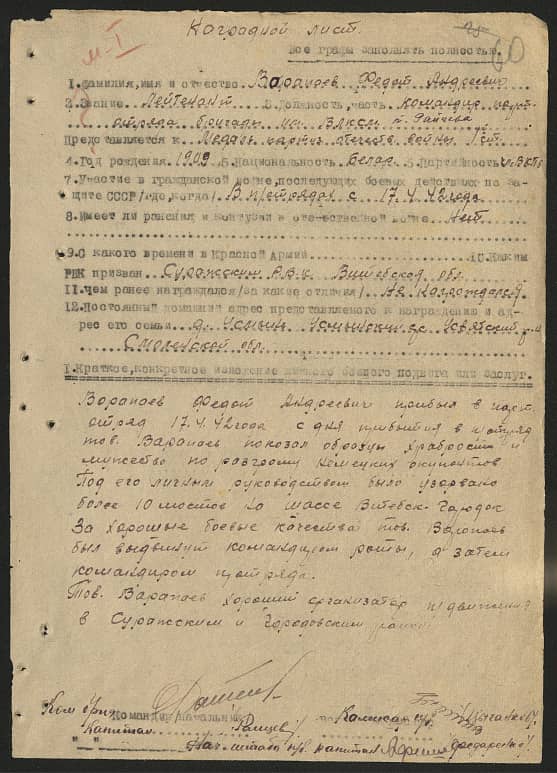 Наградной лист.
60
м-I
Все графы заполнять полностью.
1.Фамилия,имя и отчество Варапаев Федот Андреевич
2.Звание Лейтенант 3.Должность,часть командир парт-
отряда бригады им ВЛКСМ т. Райцева
Представляется к Медаль парт. отечеств. войны I ст
4.Год рождения 1909 5.Национальность Белор. 6.Партийность чл ВКПб
7.Участие в гражданской войне,последующих боевых действиях по за-
щите СССР/где,когда/ В п/отрядах с 17.4.42 года
8.Имеет ли ранения и контузии в отечественной войне Нет
9.С какого времени в Красной Армии 10.Каким
РВК призван Суражским Р.В.К. Витебской обл.
11.Чем ранее награждался/за какие отличия/ Не награждался
12.Постоянный домашний адрес представляемого к награждению и ад-
рес его семьи д. Усмынь Усмынский с/с Усвятский р-н
Смоленской обл.
I.Краткое,конкретное изложение личного боевого подвига или заслуг.
Варапаев Федот Андреевич прибыл в парт.
отряд 17.4.42 года с дня прибытия в п/отряд
тов. Варапаев показал образцы храбрости и
мужество по разгрому немецких окупантов
Под его личным руководством было узорвано
более 10 мостов по шассе Витебск-Городок
За хорошые боевые качества тов. Варапаев
был выдвинут командиром роты, а затем
командиром п/отряда.
Тов. Варапаев хороший организатор п/движения
в Суражским и Городокским район
Ком бриг Командир/начальник Комисар п/б
капитан Райцев/ /Цыганков/
Нач. штаба п/б капитан /Федаренко/